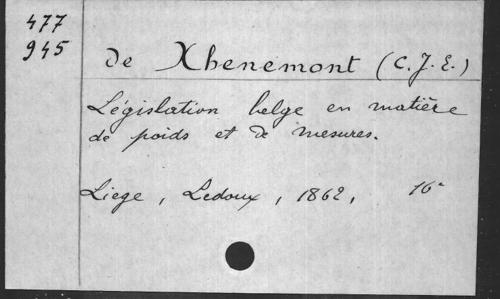 477
945
de Xhenemont (C. J. E.)
Législation belge en matière
de poids et de mesures.
Liege, Ledoux, 1862, 16°